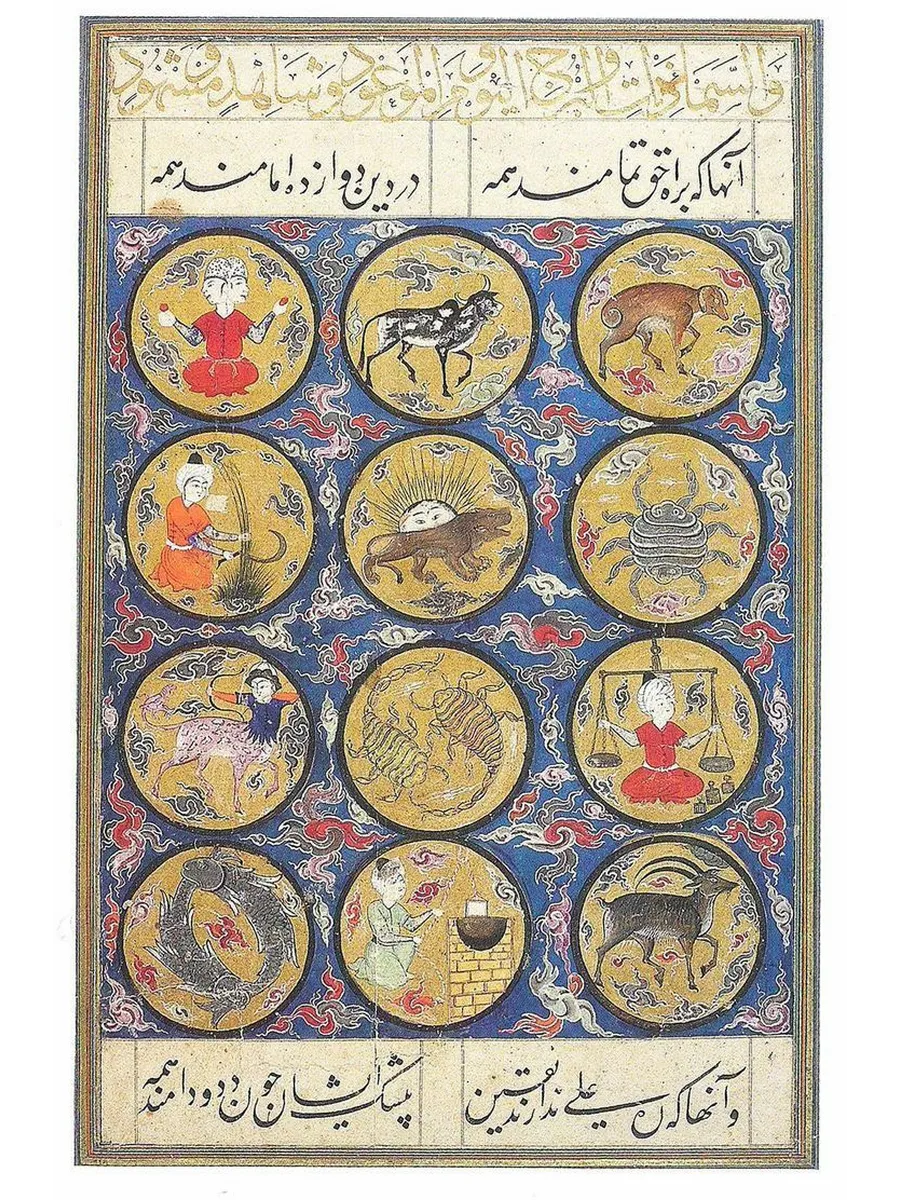 والسماء ذات البروج واليوم الموعود وشاهد ومشهود
آنها که براه حق تمامند همه
در دین دوازده امامند همه
و آنها که علی ندارند یقین
بیشک ایشان چون دد و دامند همه